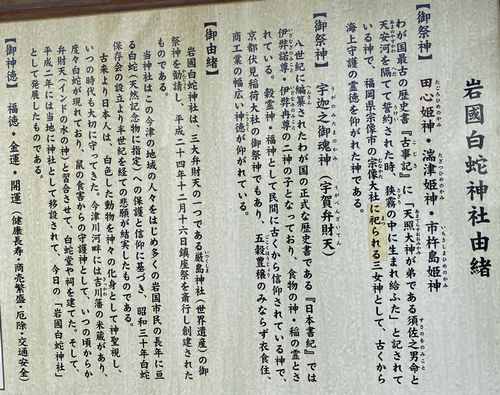 岩國白蛇神社由緒
【御祭神】
田心姫神・湍津姫神・市杵島姫神
わが国最古の歴史書『古事記』に「天照大神が弟である須佐之男命と
天安河を隔てて誓約された時、狭霧の中に生まれ給ふた」と記されて
いる神で、福岡県宗像市の宗像大社に祀られる三女神として、古くから
海上守護の霊徳を仰がれた神である。
【御祭神】宇迦之御魂神（宇賀弁財天）
八世紀に編纂されたわが国の正式な歴史書である『日本書紀』では
伊弉諾尊、伊弉冉尊の二神の子となっており、食物の神・稲の霊とさ
れている。穀霊神・福神として民間に古くから信仰されている神で、
京都伏見稲荷大社の御祭神でもあり、五穀豊穣のみならず衣食住、
商工業の幅広い神徳が仰がれている。
【御由緒】
岩国白蛇神社は、三大弁財天の一つである厳島神社（世界遺産）の御
祭神を勧請し、平成二十四年十二月十六日鎮座祭を斎行し創建された
ものである。
当神社はこの今津の地域の人々をはじめ多くの岩国市民の長年に亘
る白蛇（天然記念物に指定）への保護と信仰に基づき、昭和三十年白蛇
保存会の設立より半世紀を経ての悲願が結実したものである。
古来より日本人は、白色した動物を神々の化身として神聖視し、
いつの時代も大切に守ってきた。今津川河畔には吉川藩の米蔵があり、
度々白蛇が現れており、鼠の食害からの守護神として、いつの頃からか
弁財天（インドの水の神）と習合させて、白蛇堂や祠を建てた。そして、
平成二年には当地に神社として移設されて、今日の「岩國白蛇神社」
として発展したものである。
【御神徳】福徳・金運・開運（健康長寿・商売繁盛・厄除・交通安全）